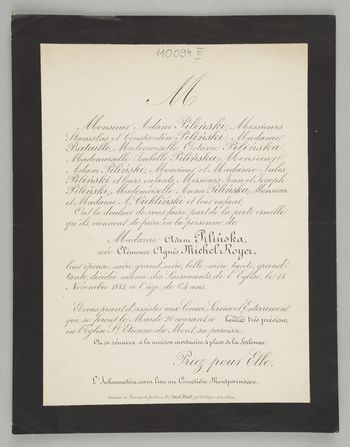 110094 III
M
Monsieur Adam Piliński, Messieurs
Stanislas et Constantin Piliński, Madame
Bataille, Mademoiselle Octavie Pilińska,
Mademoiselle Isabelle Pilińska, Monsieur
Adam Piliński, Monsieur et Madame Jules
Piliński et leurs enfants, Messieurs Jean et Joseph
Piliński, Mademoiselle Anna Pilińska, Monsieur
et Madame A. et leur enfant,
Ont la douleur de vous faire part de la perte cruelle
qu'ils viennent de faire en la personne de
Madame Adam Pilińska,
née Clémence Agnès Michel-Royer,
leur épouse, mère, grand'mère, belle-mère, tante, grand'
tante, décédée munie des Sacrements de l'Eglise, le 18
Novembre 1883, à l'âge de 64 ans.
Et vous prient d'assister aux Convoi, Service et Enterrement
qui se feront le Mardi 20 courant, à heures très précises,
en l'Eglise St Etienne du Mont, sa paroisse.
On se réunira à la maison mortuaire, 3 place de la Sorbonne.
Priez pour Elle.
L'Inhumation aura lieu au Cimetière Montparnasse.